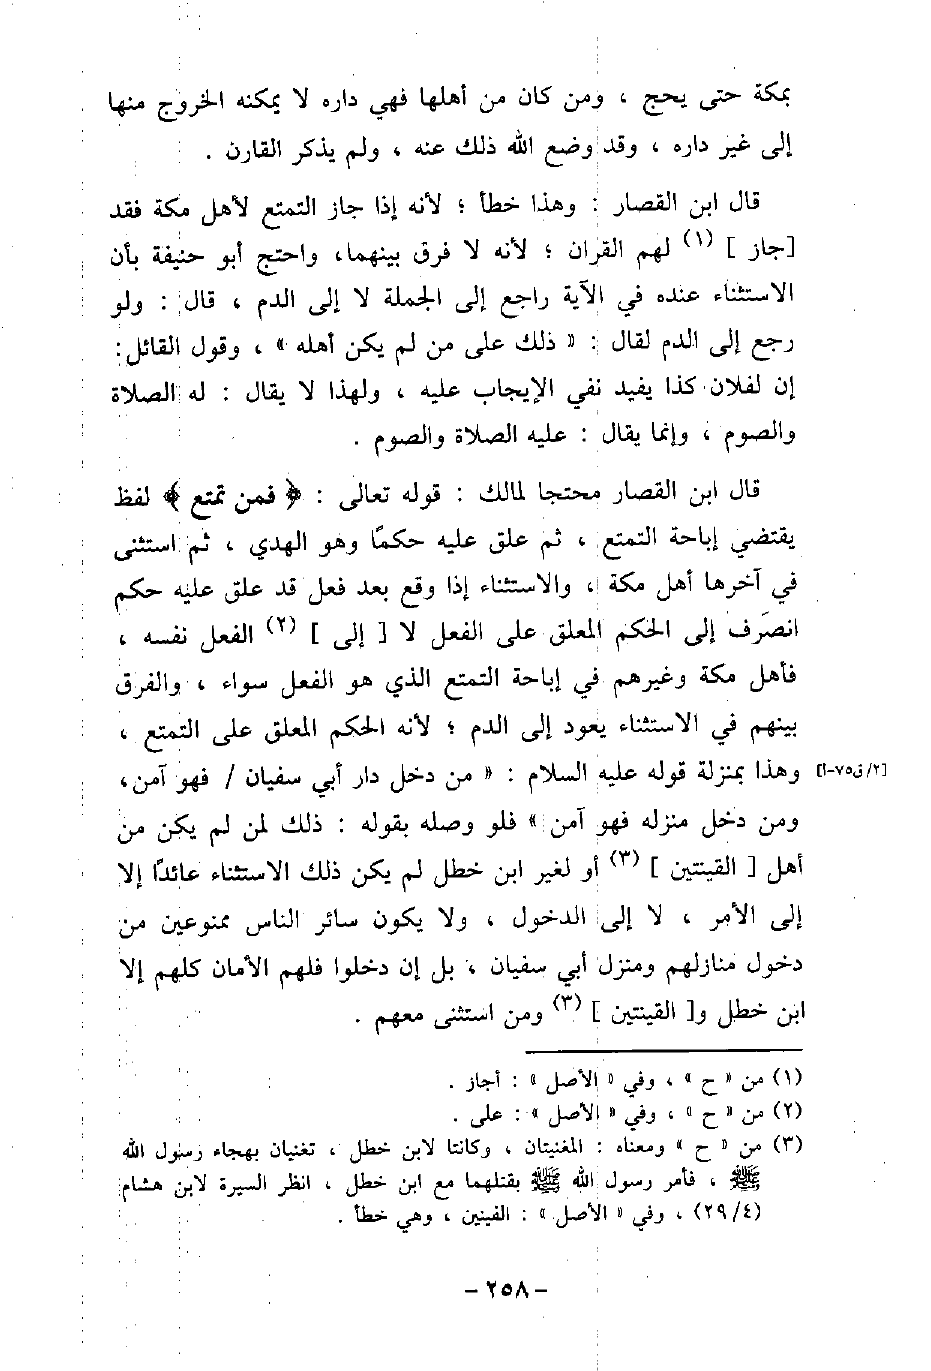 بمكة حتى يحج ، ومن كان من أهلها فهي داره لا يمكنه الخروج منها
إلى غير داره ، وقد وضع الله ذلك عنه ، ولم يذكر القارن .
قال ابن القصار : وهذا خطأ ؛ لأنه إذا جاز التمتع لأهل مكة فقد
[جاز ] (١) لهم القران ؛ لأنه لا فرق بينهما، واحتج أبو حنيفة بأن
الاستثناء عنده في الآية راجع إلى الجملة لا إلى الدم ، قال : ولو
رجع إلى الدم لقال : « ذلك على من لم يكن أهله » ، وقول القائل:
إن لفلان كذا يفيد نفي الإيجاب عليه ، ولهذا لا يقال : له الصلاة
والصوم ، وإنما يقال : عليه الصلاة والصوم .
قال ابن القصار محتجا لمالك : قوله تعالى : ﴿ فمن تمتع ﴾ لفظ
يقتضي إباحة التمتع ، ثم علق عليه حكمًا وهو الهدي ، ثم استثنى
في آخرها أهل مكة ، والاستثناء إذا وقع بعد فعل قد علق عليه حكم
انصَرف إلى الحكم المعلق على الفعل لا [ إلى ] (٢) الفعل نفسه ،
فأهل مكة وغيرهم في إباحة التمتع الذي هو الفعل سواء ، والفرق
بينهم في الاستثناء يعود إلى الدم ؛ لأنه الحكم المعلق على التمتع ،
[٢/ق٧٥-أ] وهذا بمنزلة قوله عليه السلام : « من دخل دار أبي سفيان / فهو آمن،
ومن دخل منزله فهو آمن » فلو وصله بقوله : ذلك لمن لم يكن من
أهل [ القينتين ] (٣) أو لغير ابن خطل لم يكن ذلك الاستثناء عائدًا إلا
إلى الأمر ، لا إلى الدخول ، ولا يكون سائر الناس ممنوعين من
دخول منازلهم ومنزل أبي سفيان ، بل إن دخلوا فلهم الأمان كلهم إلا
ابن خطل و[ القينتين ] (٣) ومن استثنى معهم .
(١) من « ح » ، وفي « الأصل » : أجاز .
(٢) من « ح » ، وفي « الأصل » : على .
(٣) من « ح » ومعناه : المغنيتان ، وكانتا لابن خطل ، تغنيان بهجاء رسول الله
ﷺ ، فأمر رسول الله ﷺ بقتلهما مع ابن خطل ، انظر السيرة لابن هشام
(٢٩/٤) ، وفي « الأصل » : الفينين ، وهي خطأ .
- ٢٥٨ -